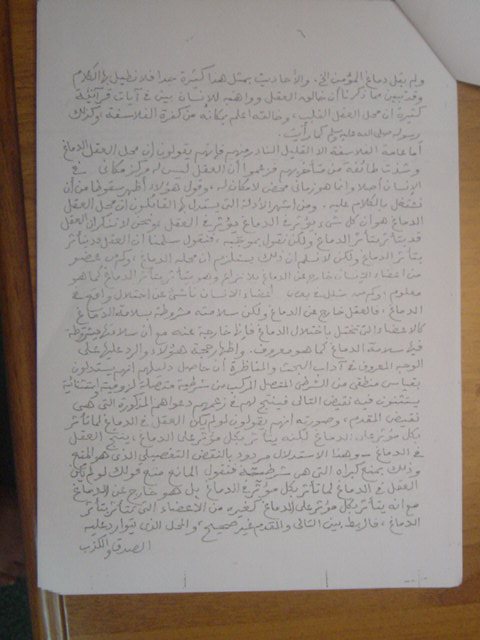 ولم يقل دماغ المؤمن الخ، والأحاديث بمثل هذا كثيرة جدا فلا نطيل بها الكلام
وقد تبين مما ذكرنا أن خالق العقل وواهبه للإنسان بين في آيات قرآنية
كثيرة أن محل العقل القلب، وخالقه أعلم بمكانه من كفرة الفلاسفة وكذلك
رسوله صلى الله عليه وسلم كما رأيت.
أما عامة الفلاسفة الا القليل النادر منهم فإنهم يقولون أن محل العقل الدماغ
وشذت طائفة من متأخريهم فزعموا أن العقل ليس له مركز مكاني في
الإنسان أصلا وانما هو زماني محض لا مكان له، وقول هؤلاء أظهر سقوطا من أن
نشتغل بالكلام عليه. ومن أشهر الأدلة التي يستدل بها القائلون أن محل العقل
الدماغ هو ان كل شيء يؤثر في الدماغ يؤثر في العقل ونحن لا ننكر ان العقل
قد يتأثر بتأثر الدماغ ولكن نقول بموجبه، فنقول سلمنا أن العقل قد يتأثر
بتأثر الدماغ ولكن لا نسلم ان ذلك يستلزم ان محله الدماغ، وكم من عضو
من أعضاء الإنسان خارج عن الدماغ بلا نزاع وهو يتأثر بتأثر الدماغ كما هو
معلوم، وكم من شلل في بعض أعضاء الانسان ناشئ عن اختلال واقع في
الدماغ، فالعقل خارج عن الدماغ ولكن سلامته مشروطة بسلامة الدماغ
كالأعضاء التي تختل باختلال الدماغ فإنها خارجة عنه مع أن سلامتها مشروطة
فيها سلامة الدماغ كما هو معروف. وإظهار حجة هؤلاء والرد عليها على
الوجه المعروف في آداب البحث والمناظرة أن حاصل دليلهم انهم يستدلون
بقياس منطقي من الشرطي المتصل المركب من شرطية متصلة لزومية واستثنائية
يستثنون فيه نقيض التالي فينتج لهم في زعمهم دعواهم المذكورة التي هي
نقيض المقدم، وصورته أنهم يقولون لو لم يكن العقل في الدماغ لما تأثر
بكل مؤثر على الدماغ لكنه يتأثر بكل مؤثر على الدماغ، ينتج العقل
في الدماغ - وهذا الاستدلال مردود بالنقض التفصيلي الذي هو المنع
وذلك بمنع كبراه التي هي شرطيته فنقول المانع منع قولك لو لم يكن
العقل في الدماغ لما تأثر بكل مؤثر في الدماغ بل هو خارج عن الدماغ
مع انه يتأثر بكل مؤثر على الدماغ كغيره من الأعضاء التي تتأثر بتأثر
الدماغ، فالربط بين التالي والمقدم غير صحيح، والمحل الذي يتوارد عليه
الصدق والكذب